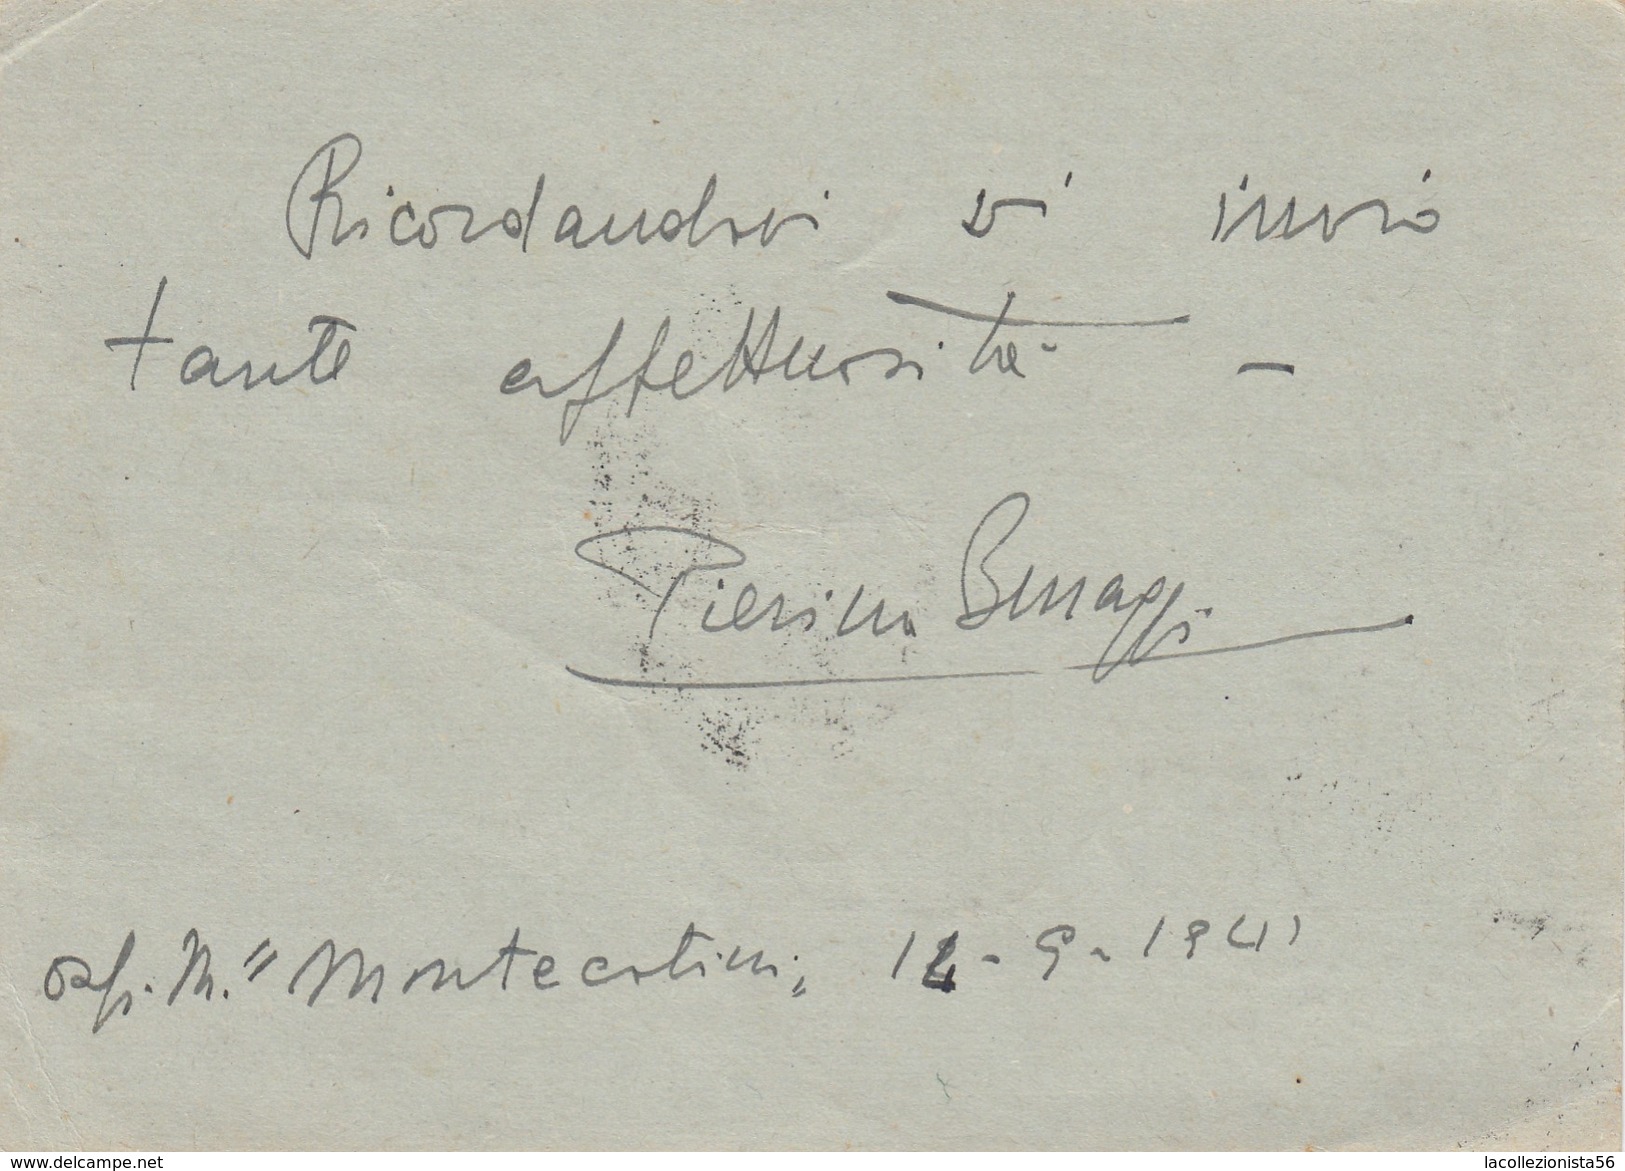 Ricordandovi vi invio
tante affettuosità -
Pierina
osp. M. "Montecatini" 14-9-1941
www.delcampe.net
lacollezionista56